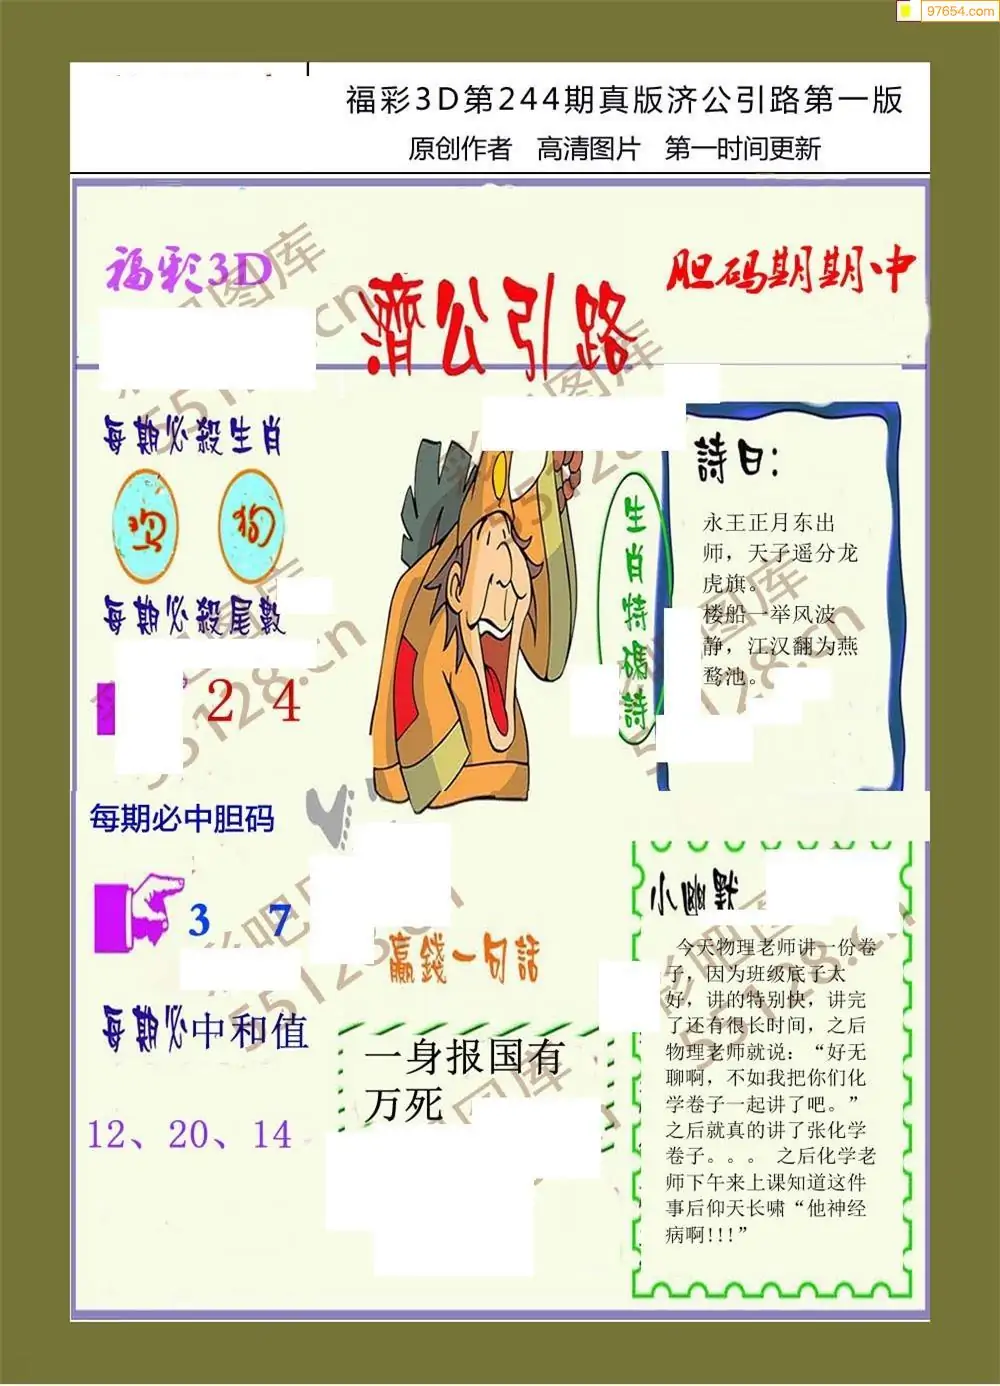 97654.com
福彩3D第244期真版济公引路第一版
原创作者 高清图片 第一时间更新
福彩3D
濟公引路
胆码期期中
每期必殺生肖
鸡 狗
每期必殺尾數
2 4
每期必中胆码
3 7
每期必中和值
12、20、14
生肖特碼詩
詩曰:
永王正月东出
师，天子遥分龙
虎旗。
楼船一举风波
静，江汉翻为燕
鹜池。
贏錢一句話
一身报国有
万死
小幽默
今天物理老师讲一份卷
子，因为班级底子太
好，讲的特别快，讲完
了还有很长时间，之后
物理老师就说：“好无
聊啊，不如我把你们化
学卷子一起讲了吧。”
之后就真的讲了张化学
卷子。。。 之后化学老
师下午来上课知道这件
事后仰天长啸“他神经
病啊!!!”
彩吧图库
55128.cn